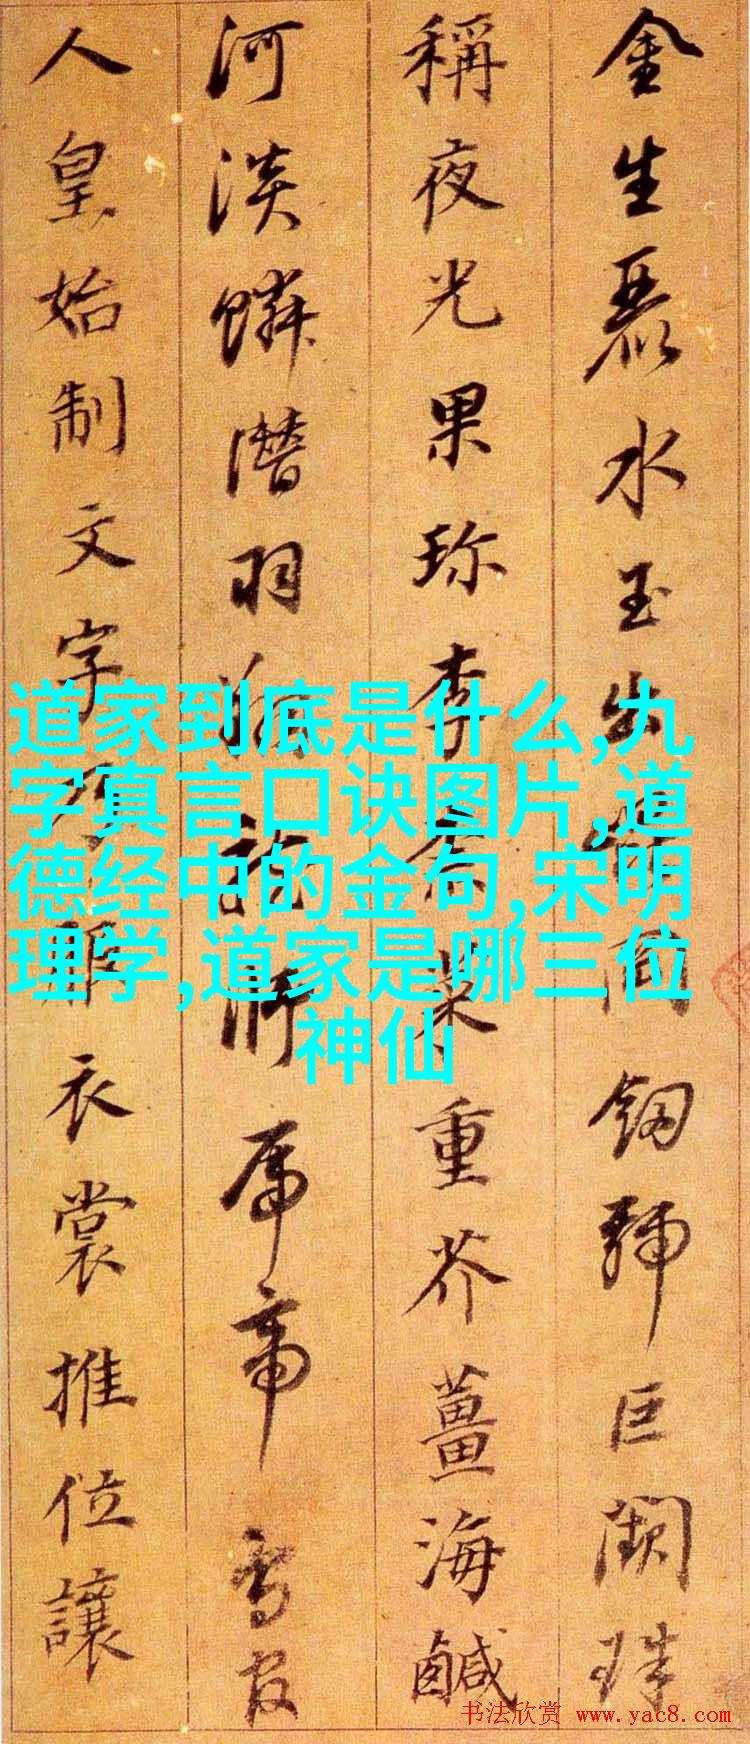 金生麗水玉出崑岡釼號巨闕珠
稱夜光果珍李柰菜重芥薑海鹹
河淡鱗潛羽翔龍師帝鳥官
人皇始制文字乃服衣裳推位讓
道家到底是什么,九
字真言口诀图片,道
德经中的金句,宋明
理学,道家是哪三位
神仙
书法欣赏 www.yac8.com